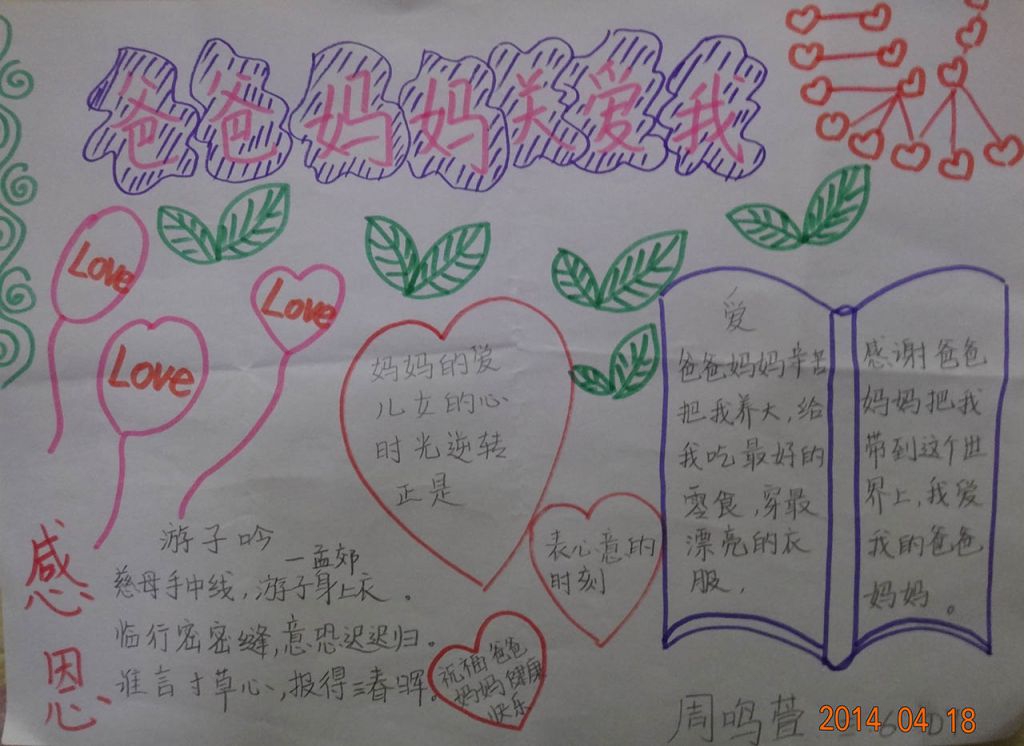 爸爸妈妈关爱我
Love
Love
Love
妈妈的爱
儿女的心
时光逆转
正是
表心意的
时刻
爱
爸爸妈妈辛苦
把我养大,给
我吃最好的
零食,穿最
漂亮的衣
服,
感谢爸爸
妈妈把我
带到这个世
界上,我爱
我的爸爸
妈妈。
感恩
游子吟
—孟郊
慈母手中线,游子身上衣。
临行密密缝,意恐迟迟归。
谁言寸草心,报得三春晖。
祝福爸爸
妈妈健康
快乐
周鸣萱
2014.04.18